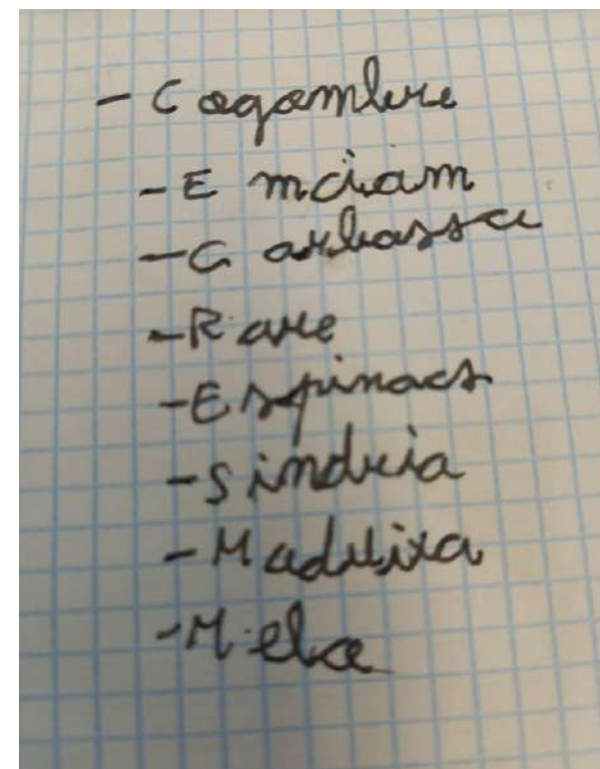 - Cogombre
- Enciam
- Carbassa
- Rave
- Espinacs
- Sindria
- Maduixa
- Melo